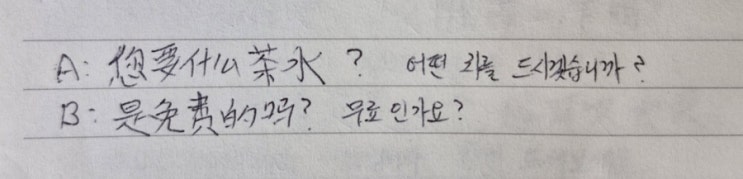 A: 您要什么茶水? 어떤 차를 드시겠습니까?
B: 是免费的吗? 무료인가요?